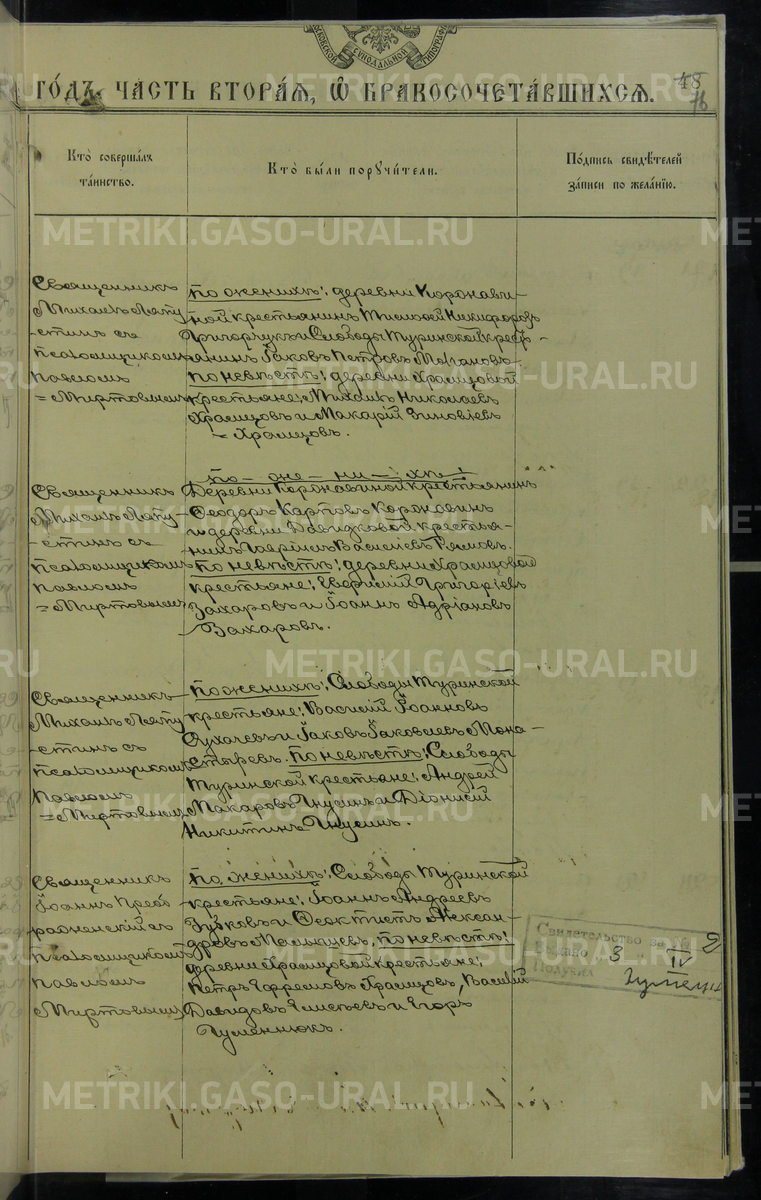 МОСКОВСКОЙ СѴНОДАЛЬНОЙ ТИПОГРАФІИ
ГО́ДЪ ЧА́СТЬ ВТОРА́Я, Ѡ҆ БРАКОСОЧЕТА́ВШИХСЯ.
48
76
Кто̀ соверша́лъ
та́инство.
Кто̀ бы́ли поручи́тели.
По́дпись свидѣ́телей
за́писи по жела́нїю.
Священникъ
Михаилъ Ляпу
-стинъ съ
псаломщикомъ
Павломъ
=Миртовымъ
По женихѣ: деревни Коровьи-
ной крестьянинъ Тимофей Никифоровъ
Григорчукъ и Слободы Туринской кресть-
янинъ Іаковъ Петровъ
По невѣстѣ: деревни Храмцовой
крестьяне: Михаилъ Николаевъ
Храмцовъ и Макарій Зиновіевъ
= Храмцовъ.
Священникъ
Михаилъ Ляпу-
-стинъ съ
псаломщикомъ
Павломъ
=Миртовымъ
По-же-ни-хѣ:
Деревни Коровьиной крестьянинъ
Ѳеодоръ Карповъ Коровьинъ
и деревни Давыдковой крестья-
нинъ Гавріилъ Васильевъ
По невѣстѣ: деревни Храмцовой
крестьяне: Григоріевъ
Захаровъ и Іоаннъ Адріановъ
Захаровъ.
Священникъ
Михаилъ Ляпу
-стинъ съ
псаломщикомъ
Павломъ
=Миртовымъ
По женихѣ: Слободы Туринской
крестьяне: Василій Іоанновъ
Сухачевъ и Іаковъ Іаковлевъ Мона-
стыревъ. По невѣстѣ: Слободы
Туринской крестьяне: Андрей
Макаровъ Гнусинъ и Діонисій
Никитинъ Гнусинъ.
Священникъ
Іоаннъ Преоб
раженскій съ
псаломщикомъ
Павломъ
Миртовымъ
По женихѣ: Слободы Туринской
крестьяне: Іоаннъ Андреевъ
Зубковъ и Ѳеоктистъ Алексан-
дровъ Малышевъ, по невѣстѣ:
деревни Храмцовой крестьяне:
Петръ Ефремовъ Храмцовъ, Василій
Давидовъ Елисѣевъ и Егоръ
Гуменнюкъ.
Свидетельство за №
3 IV
METRIKI.GASO-URAL.RU